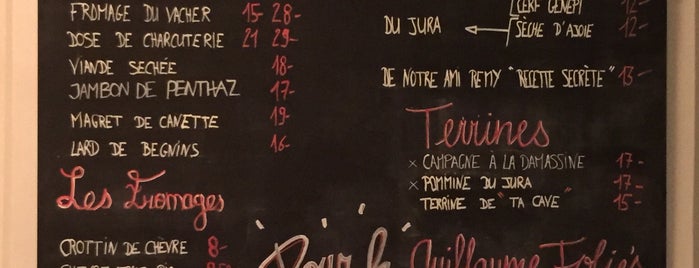 FROMAGE DU VACHER 15- 28-
DOSE DE CHARCUTERIE 21 29-
VIANDE SECHÉE 18-
JAMBON DE PENTHAZ 17-
MAGRET DE CANETTE 19-
LARD DE BEGNINS 16-
Les Fromages
CROTTIN DE CHÈVRE 8-
CERF GENEPI 12-
DU JURA
SÈCHE D'AJOIE 12-
DE NOTRE AMI REMY "RECETTE SECRÈTE" 13-
Terrines
× CAMPAGNE À LA DAMASSINE 17-
× POMMINE DU JURA 17-
TERRINE DE "TA CAVE" 15-
Guillaume